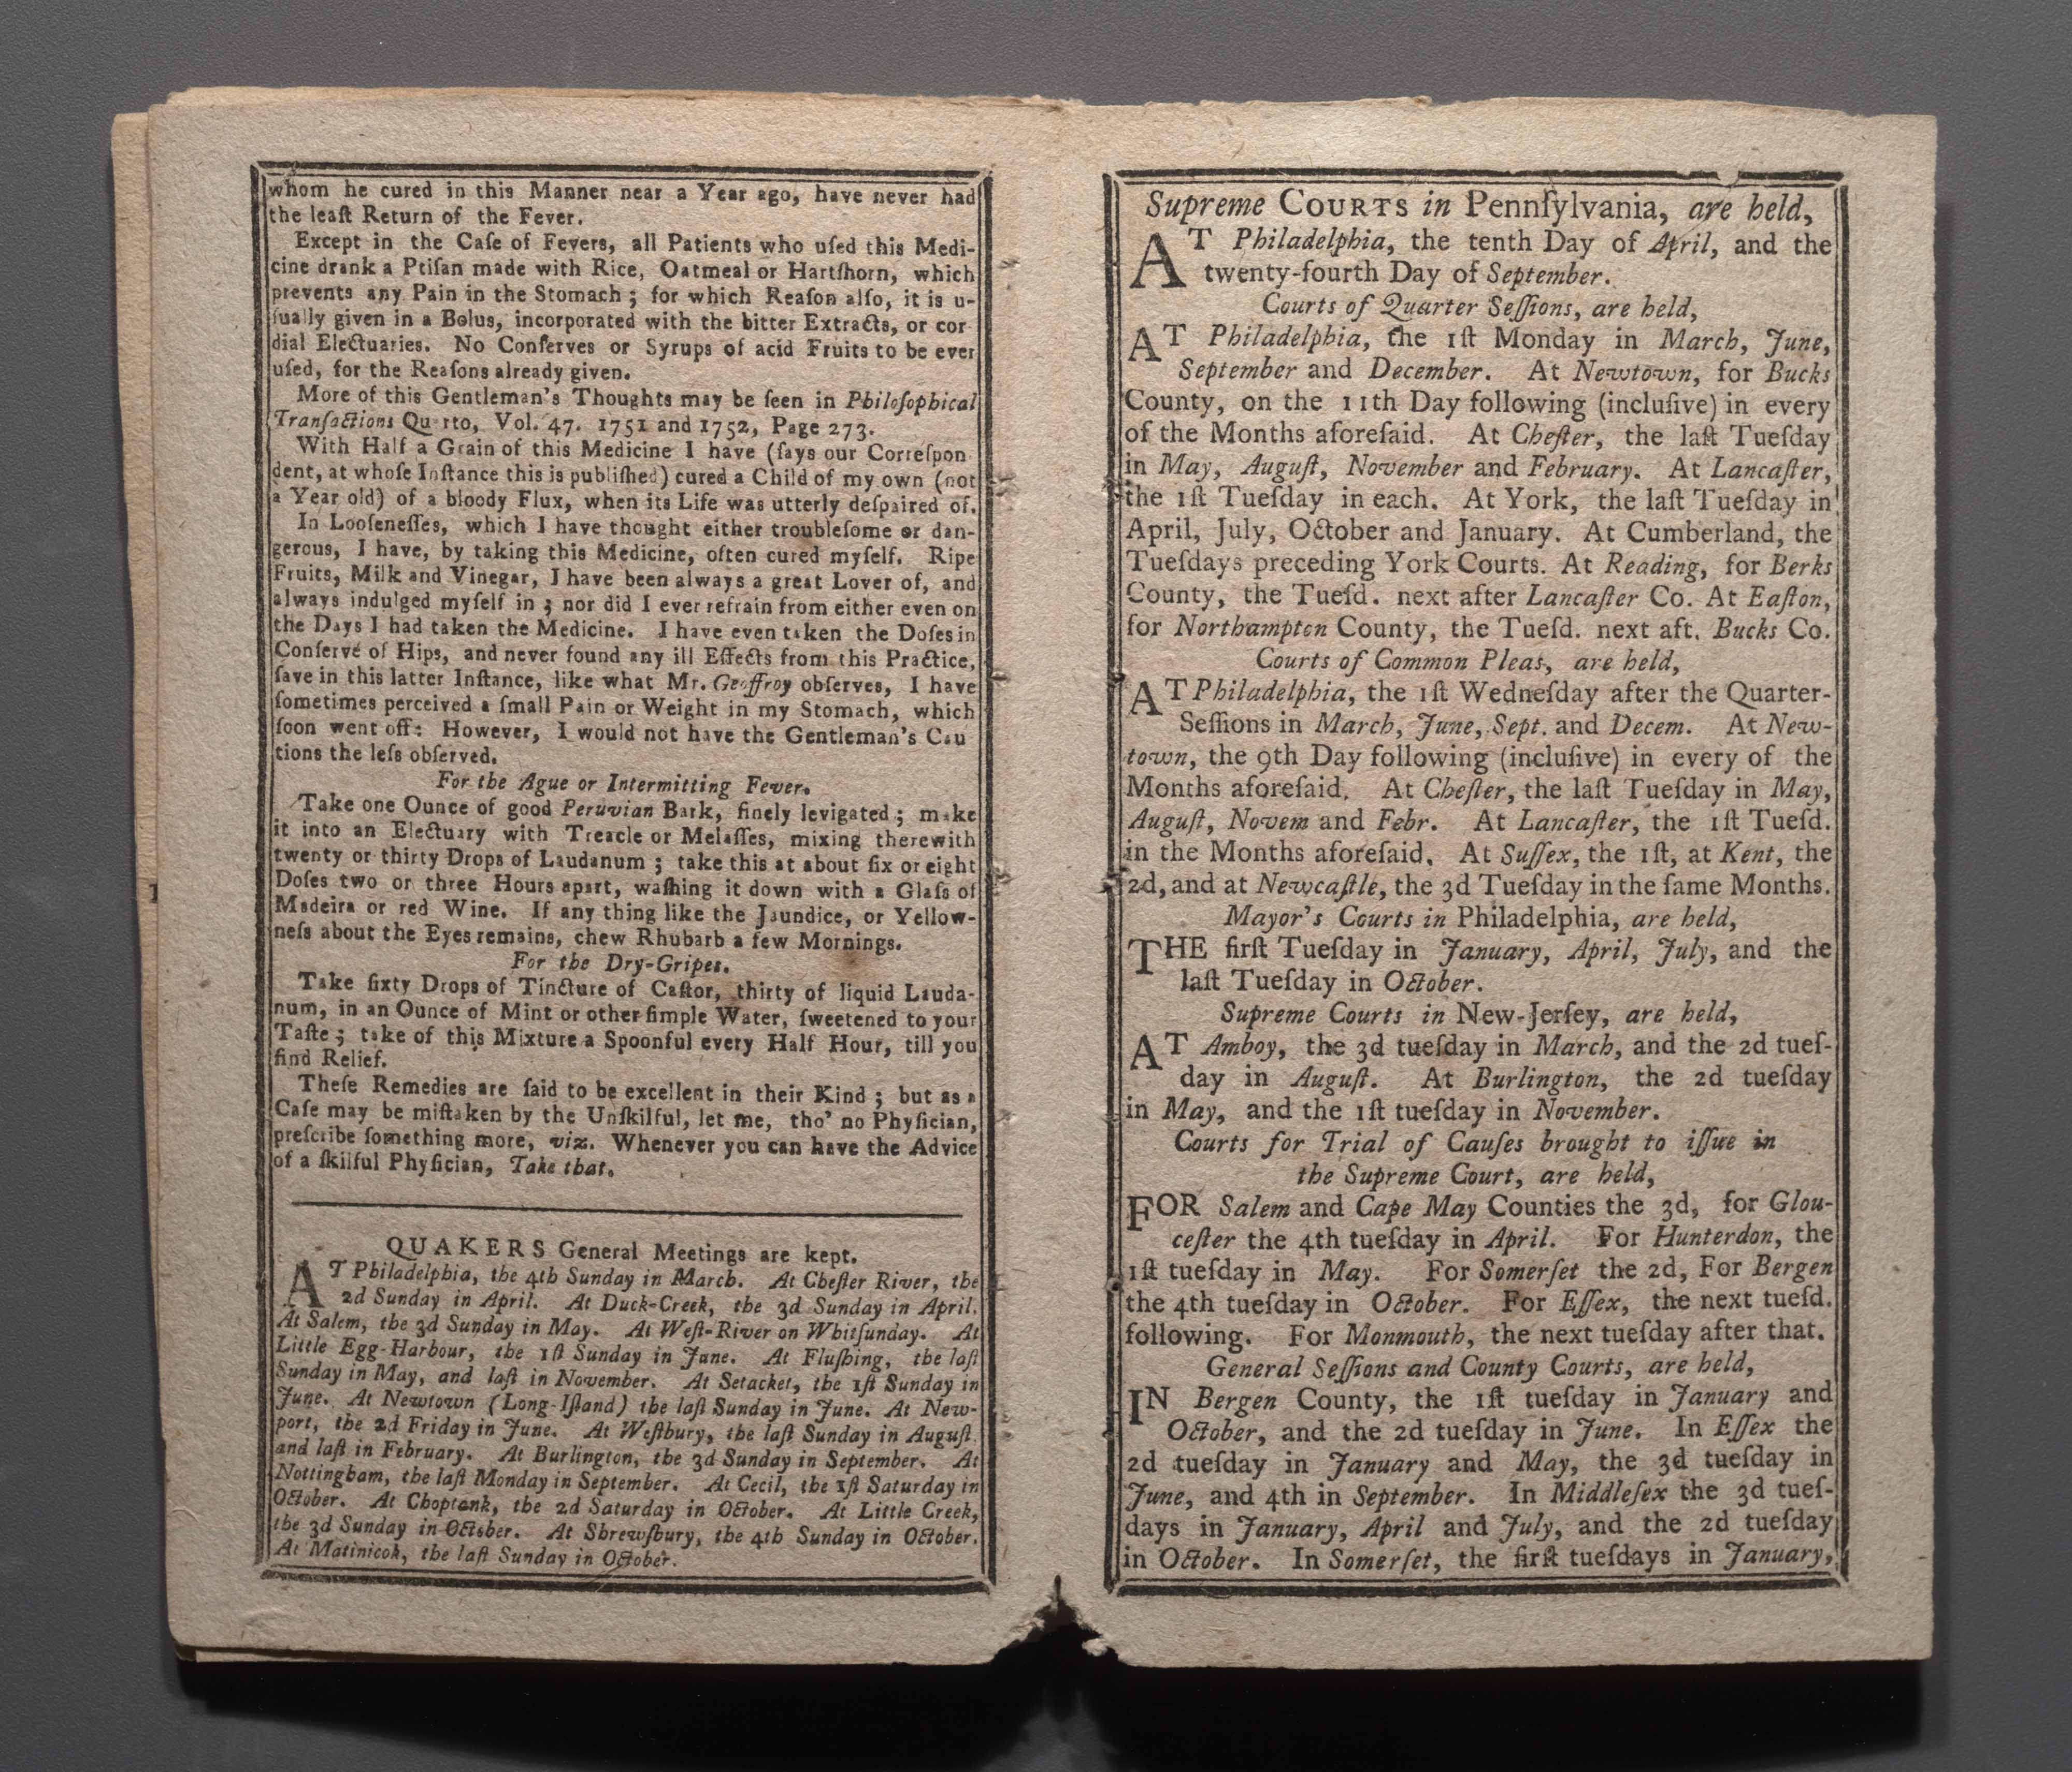 whom he cured in this Manner near a Year ago, have never had
the leaſt Return of the Fever.
Except in the Caſe of Fevers, all Patients who uſed this Medi-
cine drank a Ptiſan made with Rice, Oatmeal or Hartſhorn, which
prevents any Pain in the Stomach ; for which Reaſon alſo, it is u-
ſually given in a Bolus, incorporated with the bitter Extracts, or cor
dial Electuaries. No Conſerves or Syrups of acid Fruits to be ever
uſed, for the Reaſons already given.
More of this Gentleman's Thoughts may be ſeen in Philoſophical
Tranſactions Qu rto, Vol. 47. 1751 and 1752, Page 273.
With Half a Grain of this Medicine I have (ſays our Correſpon
dent, at whoſe Inſtance this is publiſhed) cured a Child of my own (not
a Year old) of a bloody Flux, when its Life was utterly deſpaired of.
In Looſeneſſes, which I have thought either troubleſome or dan-
gerous, I have, by taking this Medicine, often cured myſelf. Ripe
Fruits, Milk and Vinegar, I have been always a great Lover of, and
always indulged myſelf in ; nor did I ever refrain from either even on
the Days I had taken the Medicine. I have even taken the Doſes in
Conſerve of Hips, and never found any ill Effects from this Practice,
ſave in this latter Inſtance, like what Mr. Geoffroy obſerves, I have
ſometimes perceived a ſmall Pain or Weight in my Stomach, which
ſoon went off: However, I would not have the Gentleman's Cau
tions the leſs obſerved.
For the Ague or Intermitting Fever.
Take one Ounce of good Peruvian Bark, finely levigated ; make
it into an Electuary with Treacle or Melaſſes, mixing therewith
twenty or thirty Drops of Laudanum ; take this at about ſix or eight
Doſes two or three Hours apart, waſhing it down with a Glaſs of
Madeira or red Wine. If any thing like the Jaundice, or Yellow-
neſs about the Eyes remains, chew Rhubarb a few Mornings.
For the Dry-Gripes.
Take ſixty Drops of Tincture of Caſtor, thirty of liquid Lauda-
num, in an Ounce of Mint or other ſimple Water, ſweetened to your
Taſte ; take of this Mixture a Spoonful every Half Hour, till you
find Relief.
Theſe Remedies are ſaid to be excellent in their Kind ; but as a
Caſe may be miſtaken by the Unſkilful, let me, tho' no Phyſician,
preſcribe ſomething more, viz. Whenever you can have the Advice
of a ſkilful Phyſician, Take that.
QUAKERS General Meetings are kept.
AT Philadelphia, the 4th Sunday in March. At Cheſter River, the
2d Sunday in April. At Duck-Creek, the 3d Sunday in April.
At Salem, the 3d Sunday in May. At Weſt-River on Whitſunday. At
Little Egg-Harbour, the 1ſt Sunday in June. At Fluſhing, the laſt
Sunday in May, and laſt in November. At Setacket, the 1ſt Sunday in
June. At Newtown (Long-Iſland) the laſt Sunday in June. At New-
port, the 2d Friday in June. At Weſtbury, the laſt Sunday in Auguſt.
and laſt in February. At Burlington, the 3d Sunday in September. At
Nottingham, the laſt Monday in September. At Cecil, the 1ſt Saturday in
October. At Choptank, the 2d Saturday in October. At Little Creek,
the 3d Sunday in October. At Shrewſbury, the 4th Sunday in October.
At Matinicok, the laſt Sunday in October.
Supreme COURTS in Pennſylvania, are held,
AT Philadelphia, the tenth Day of April, and the
twenty-fourth Day of September.
Courts of Quarter Seſſions, are held,
AT Philadelphia, the 1ſt Monday in March, June,
September and December. At Newtown, for Bucks
County, on the 11th Day following (incluſive) in every
of the Months aforeſaid. At Cheſter, the laſt Tueſday
in May, Auguſt, November and February. At Lancaſter,
the 1ſt Tueſday in each. At York, the laſt Tueſday in
April, July, October and January. At Cumberland, the
Tueſdays preceding York Courts. At Reading, for Berks
County, the Tueſd. next after Lancaſter Co. At Eaſton,
for Northampton County, the Tueſd. next aft. Bucks Co.
Courts of Common Pleas, are held,
AT Philadelphia, the 1ſt Wedneſday after the Quarter-
Seſſions in March, June, Sept. and Decem. At New-
town, the 9th Day following (incluſive) in every of the
Months aforeſaid. At Cheſter, the laſt Tueſday in May,
Auguſt, Novem and Febr. At Lancaſter, the 1ſt Tueſd.
in the Months aforeſaid. At Suſſex, the 1ſt, at Kent, the
2d, and at Newcaſtle, the 3d Tueſday in the ſame Months.
Mayor's Courts in Philadelphia, are held,
THE firſt Tueſday in January, April, July, and the
laſt Tueſday in October.
Supreme Courts in New-Jerſey, are held,
AT Amboy, the 3d tueſday in March, and the 2d tueſ-
day in Auguſt. At Burlington, the 2d tueſday
in May, and the 1ſt tueſday in November.
Courts for Trial of Cauſes brought to iſſue in
the Supreme Court, are held,
FOR Salem and Cape May Counties the 3d, for Glou-
ceſter the 4th tueſday in April. For Hunterdon, the
1ſt tueſday in May. For Somerſet the 2d, For Bergen
the 4th tueſday in October. For Eſſex, the next tueſd.
following. For Monmouth, the next tueſday after that.
General Seſſions and County Courts, are held,
IN Bergen County, the 1ſt tueſday in January and
October, and the 2d tueſday in June. In Eſſex the
2d tueſday in January and May, the 3d tueſday in
June, and 4th in September. In Middleſex the 3d tueſ-
days in January, April and July, and the 2d tueſday
in October. In Somerſet, the firſt tueſdays in January,